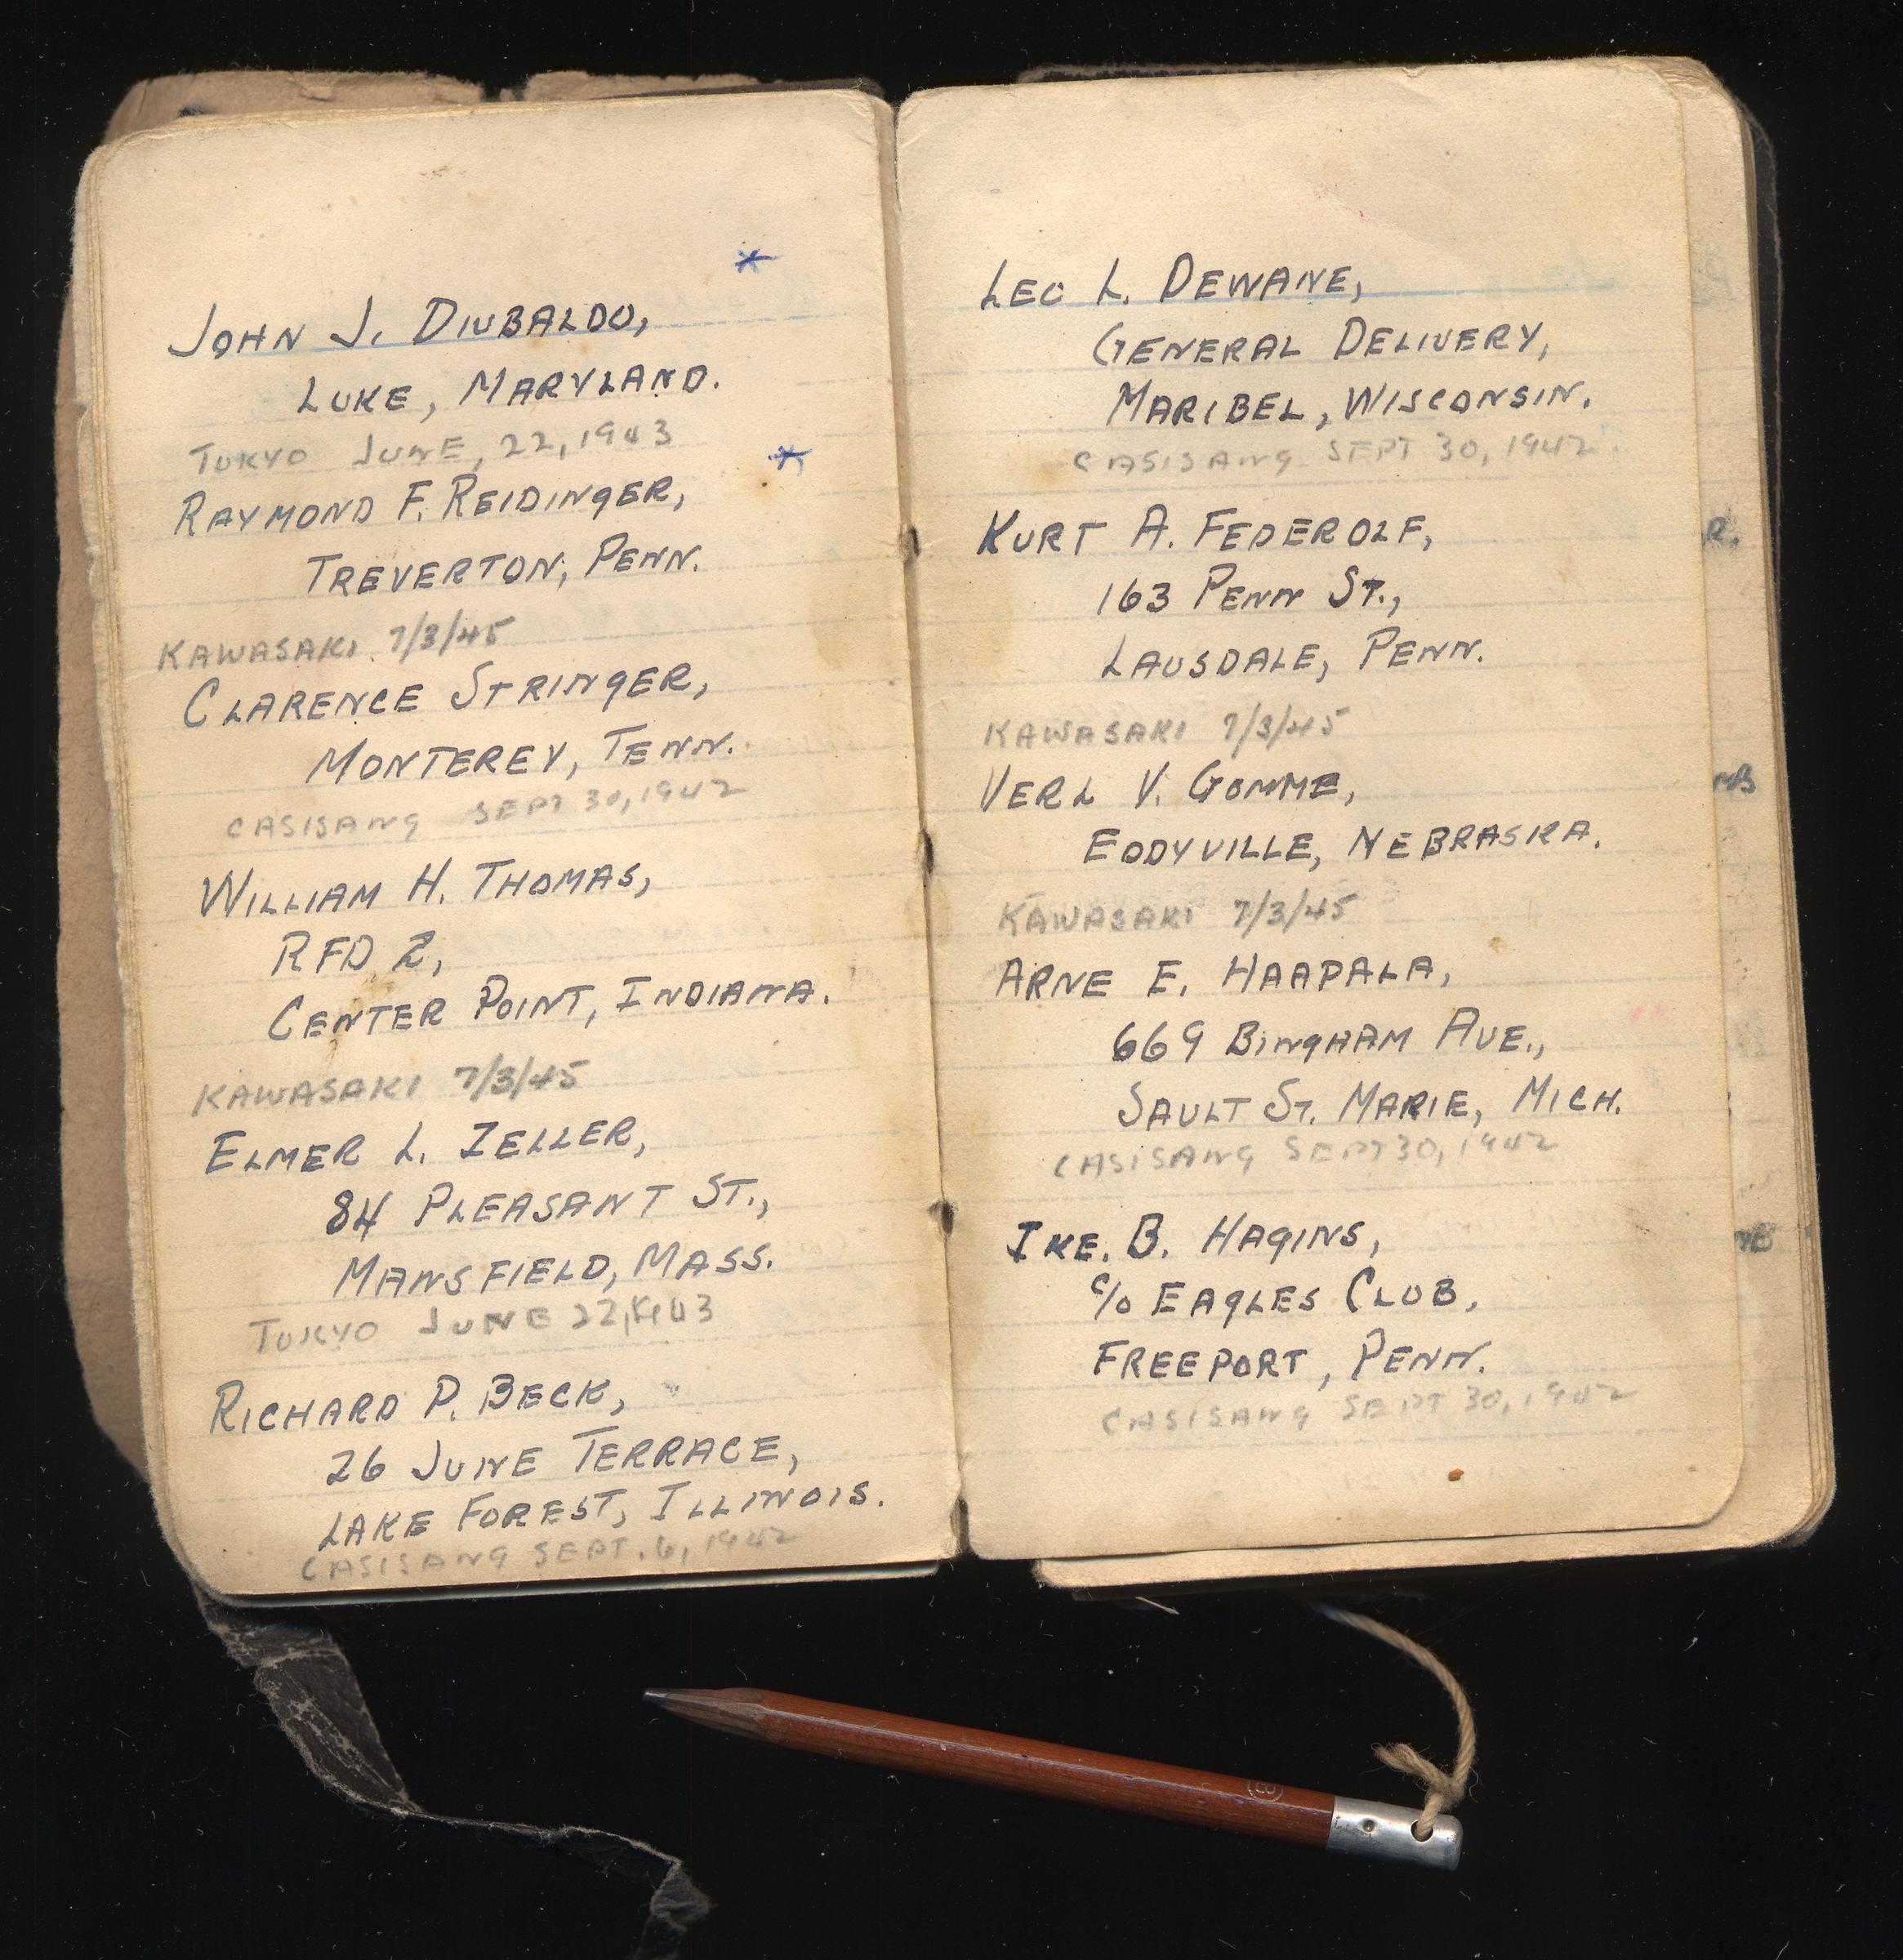 *
JOHN J. DIUBALDO,
LUKE, MARYLAND.
TOKYO JUNE, 22, 1943
*
RAYMOND F. REIDINGER,
TREVERTON, PENN.
KAWASAKI 7/3/45
CLARENCE STRINGER,
MONTEREY, TENN.
CASISANG SEPT 30, 1942
WILLIAM H. THOMAS,
RFD 2,
CENTER POINT, INDIANA.
KAWASAKI 7/3/45
ELMER L. ZELLER,
84 PLEASANT ST.,
MANSFIELD, MASS.
TOKYO JUNE 22, 1943
RICHARD P. BECK,
26 JUNE TERRACE,
LAKE FOREST, ILLINOIS.
CASISANG SEPT. 6, 1942
LEO L. DEWANE,
GENERAL DELIVERY,
MARIBEL, WISCONSIN.
CASISANG SEPT 30, 1942
KURT A. FEDEROLF,
163 PENN ST.,
LAUSDALE, PENN.
KAWASAKI 7/3/45
VERL V. GOMME,
EDDYVILLE, NEBRASKA.
KAWASAKI 7/3/45
ARNE E. HAAPALA,
669 BINGHAM AVE.,
SAULT ST. MARIE, MICH.
CASISANG SEPT 30, 1942
IKE. B. HAGINS,
c/o EAGLES CLUB,
FREEPORT, PENN.
CASISANG SEPT 30, 1942
R.